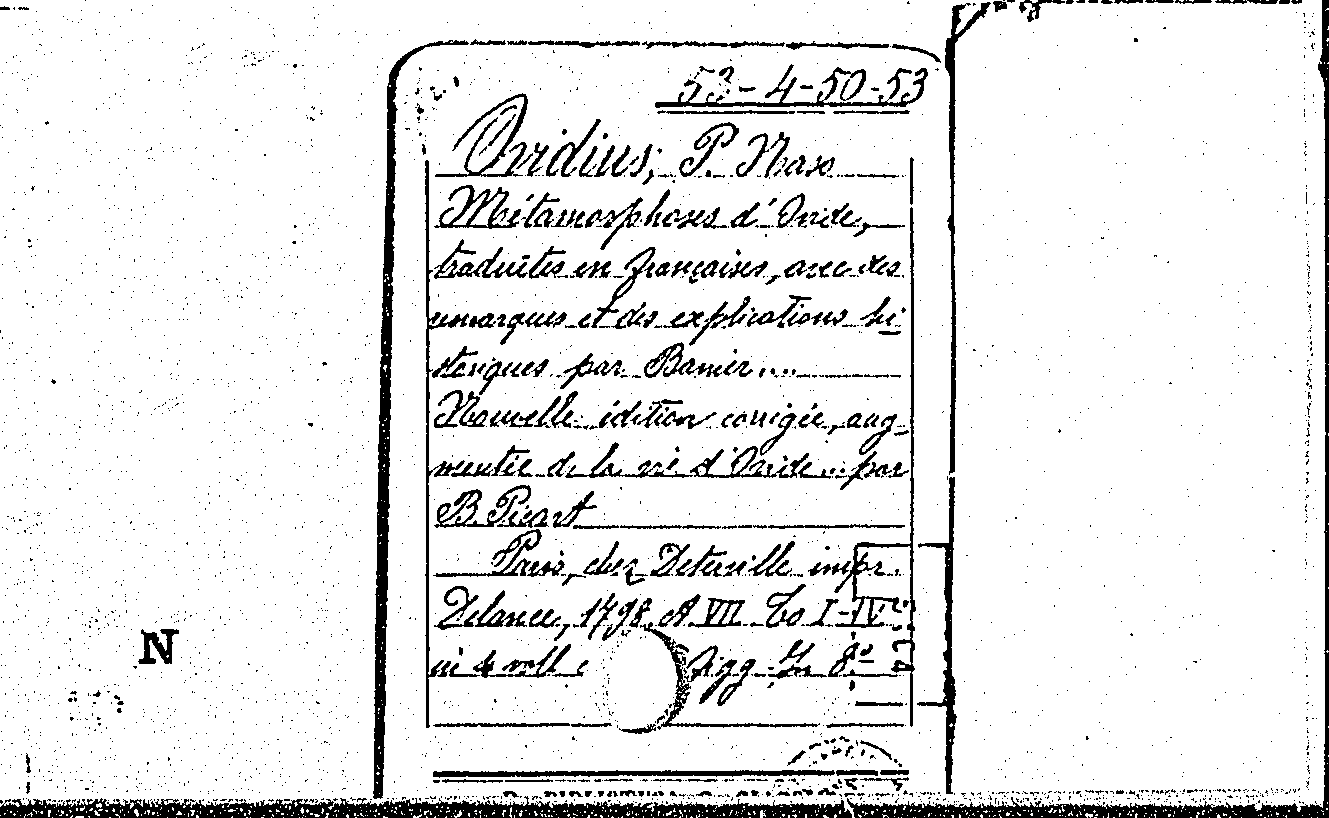 53-4-50-53
Ovidius, P. Naso
Métamorphoses d'Ovide,
traduites en françaises, avec des
remarques et des explications hi-
storiques par Banier....
Nouvelle édition corrigée, aug-
mentée de la vie d'Ovide... par
B. Picart
Paris, chez Deterville impr.
Delance, 1798. A. VII. To I-IV.
in 4 voll c figg. In 8º
N